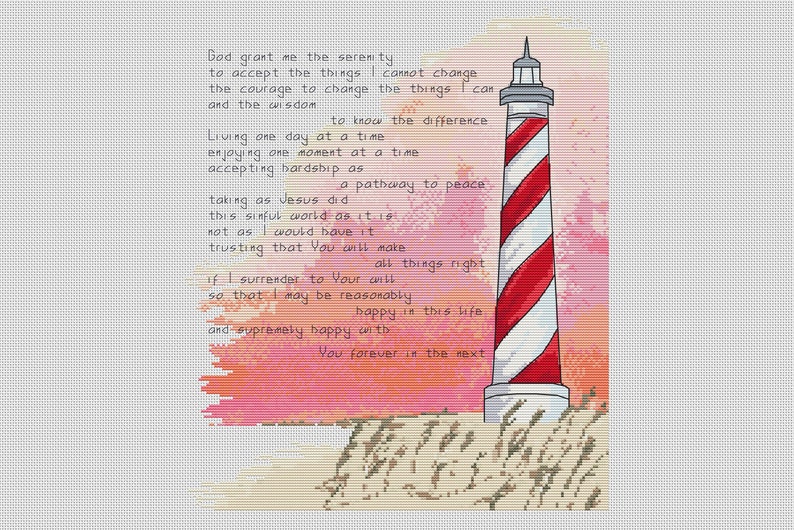 God grant me the serenity
to accept the things I cannot change
the courage to change the things I can
and the wisdom
to know the difference
Living one day at a time
enjoying one moment at a time
accepting hardship as
a pathway to peace
taking as Jesus did
this sinful world as it is
not as I would have it
trusting that You will make
all things right
if I surrender to Your will
so that I may be reasonably
happy in this life
and supremely happy with
You forever in the next